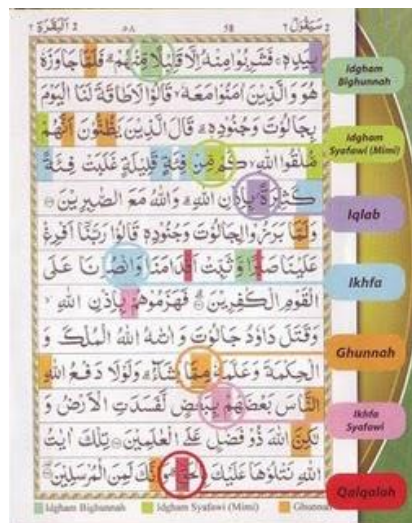 2 البقرة ٢ ٥٨ 58 سيقول ٢
بِيَدِهٖ ۚ فَشَرِبُوْا مِنْهُ اِلَّا قَلِيْلًا مِّنْهُمْ ؕ فَلَمَّا جَاوَزَهٗ
هُوَ وَالَّذِيْنَ اٰمَنُوْا مَعَهٗ ۙ قَالُوْا لَا طَاقَةَ لَنَا الْيَوْمَ
بِجَالُوْتَ وَجُنُوْدِهٖ ؕ قَالَ الَّذِيْنَ يَظُنُّوْنَ اَنَّهُمْ
مُّلٰقُوا اللّٰهِ ۙ كَمْ مِّنْ فِئَةٍ قَلِيْلَةٍ غَلَبَتْ فِئَةً
كَثِيْرَةً ۢ بِاِذْنِ اللّٰهِ ؕ وَاللّٰهُ مَعَ الصّٰبِرِيْنَ
وَلَمَّا بَرَزُوْا لِجَالُوْتَ وَجُنُوْدِهٖ قَالُوْا رَبَّنَاۤ اَفْرِغْ
عَلَيْنَا صَبْرًا وَّثَبِّتْ اَقْدَامَنَا وَانْصُرْنَا عَلَى
الْقَوْمِ الْكٰفِرِيْنَ ؕ فَهَزَمُوْهُمْ بِاِذْنِ اللّٰهِ ۙ
وَقَتَلَ دَاوٗدُ جَالُوْتَ وَاٰتٰىهُ اللّٰهُ الْمُلْكَ وَ
الْحِكْمَةَ وَعَلَّمَهٗ مِمَّا يَشَآءُ ؕ وَلَوْلَا دَفْعُ اللّٰهِ
النَّاسَ بَعْضَهُمْ بِبَعْضٍ لَّفَسَدَتِ الْاَرْضُ وَ
لٰكِنَّ اللّٰهَ ذُوْ فَضْلٍ عَلَى الْعٰلَمِيْنَ تِلْكَ اٰيٰتُ
اللّٰهِ نَتْلُوْهَا عَلَيْكَ بِالْحَقِّ ؕ وَاِنَّكَ لَمِنَ الْمُرْسَلِيْنَ
Idgham Bighunnah
Idgham Syafawi (Mimi)
Iqlab
Ikhfa
Ghunnah
Ikhfa Syafawi
Qalqalah
Idgham Bighunnah Idgham Syafawi (Mimi) Ghunnah